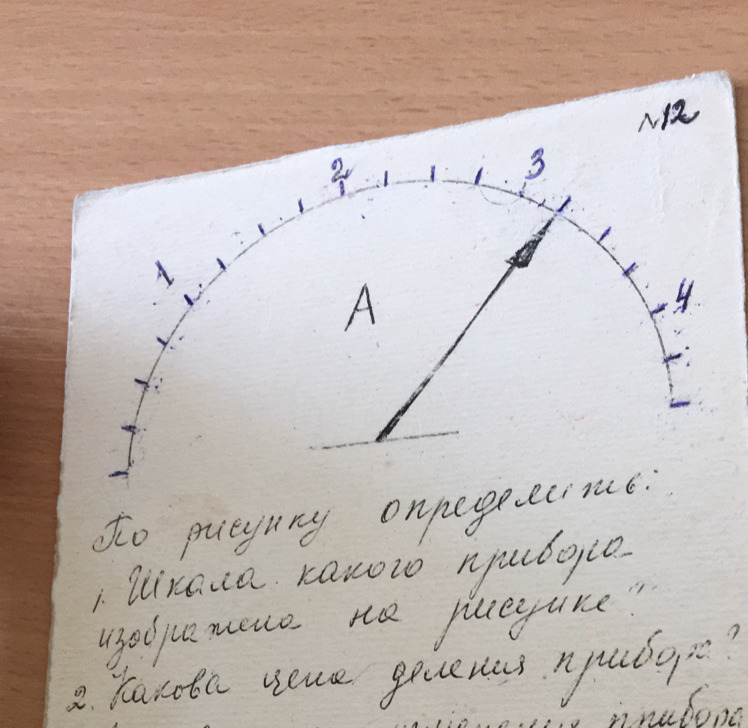 №12
1 2 3 4
А
По рисунку определить:
1. Шкала какого прибора
изображена на рисунке?
2. Какова цена деления прибора?
прибора